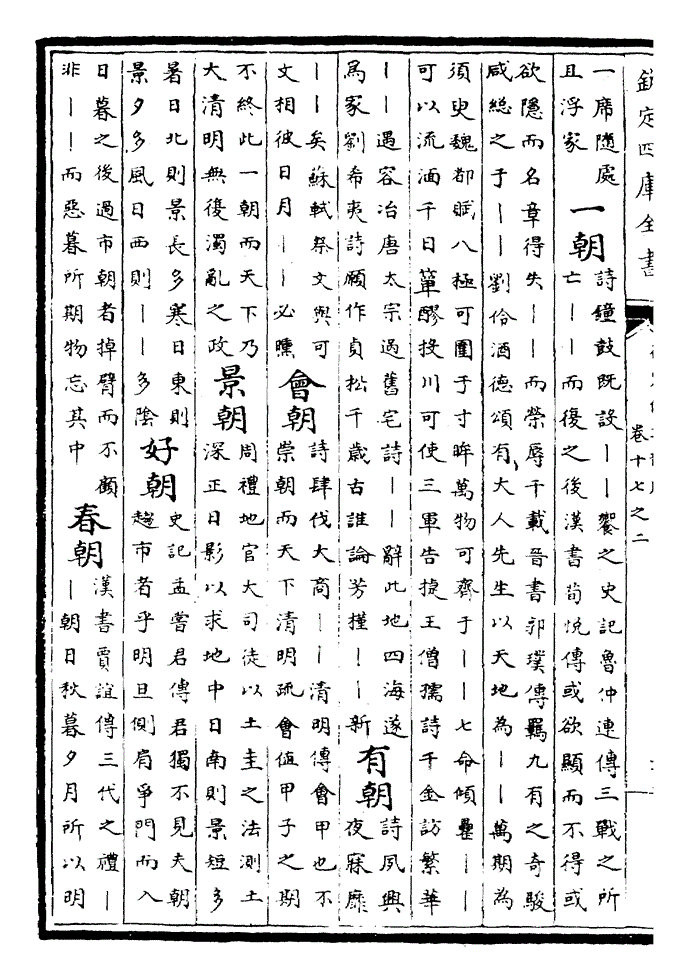 欽定四庫全書
卷十七之二
一席隨處
且浮家
一朝
詩鐘鼓既設丨丨饗之史記魯仲連傳三戰之所
亡丨丨而復之後漢書荀悅傳或欲顯而不得或
欲隱而名章得失丨丨而榮辱千載晉書郭璞傳羈九有之奇駿
咸總之于丨丨劉伶酒德頌有大人先生以天地為丨丨萬期為
須臾魏都賦八極可圍于寸眸萬物可齊于丨丨七命傾罍丨丨
可以流湎千日簞醪投川可使三軍告捷王僧孺詩千金訪繁華
丨丨遇容冶唐太宗過舊宅詩丨丨辭此地四海遂
為家劉希夷詩願作貞松千歲古誰論芳槿丨丨新
有朝
詩夙興
夜寐靡
丨丨矣蘇軾祭文與可
文相彼日月丨丨必曛
會朝
詩肆伐大商丨丨清明傳會甲也不
崇朝而天下清明疏會值甲子之期
不終此一朝而天下乃
大清明無復濁亂之政
景朝
周禮地官大司徒以土圭之法測土
深正日影以求地中日南則景短多
暑日北則景長多寒日東則
景夕多風日西則丨丨多陰
好朝
史記孟嘗君傳君獨不見夫朝
趨市者乎明旦側肩爭門而入
日暮之後過市朝者掉臂而不顧
非丨丨而惡暮所期物忘其中
春朝
漢書賈誼傳三代之禮丨
丨朝日秋暮夕月所以明